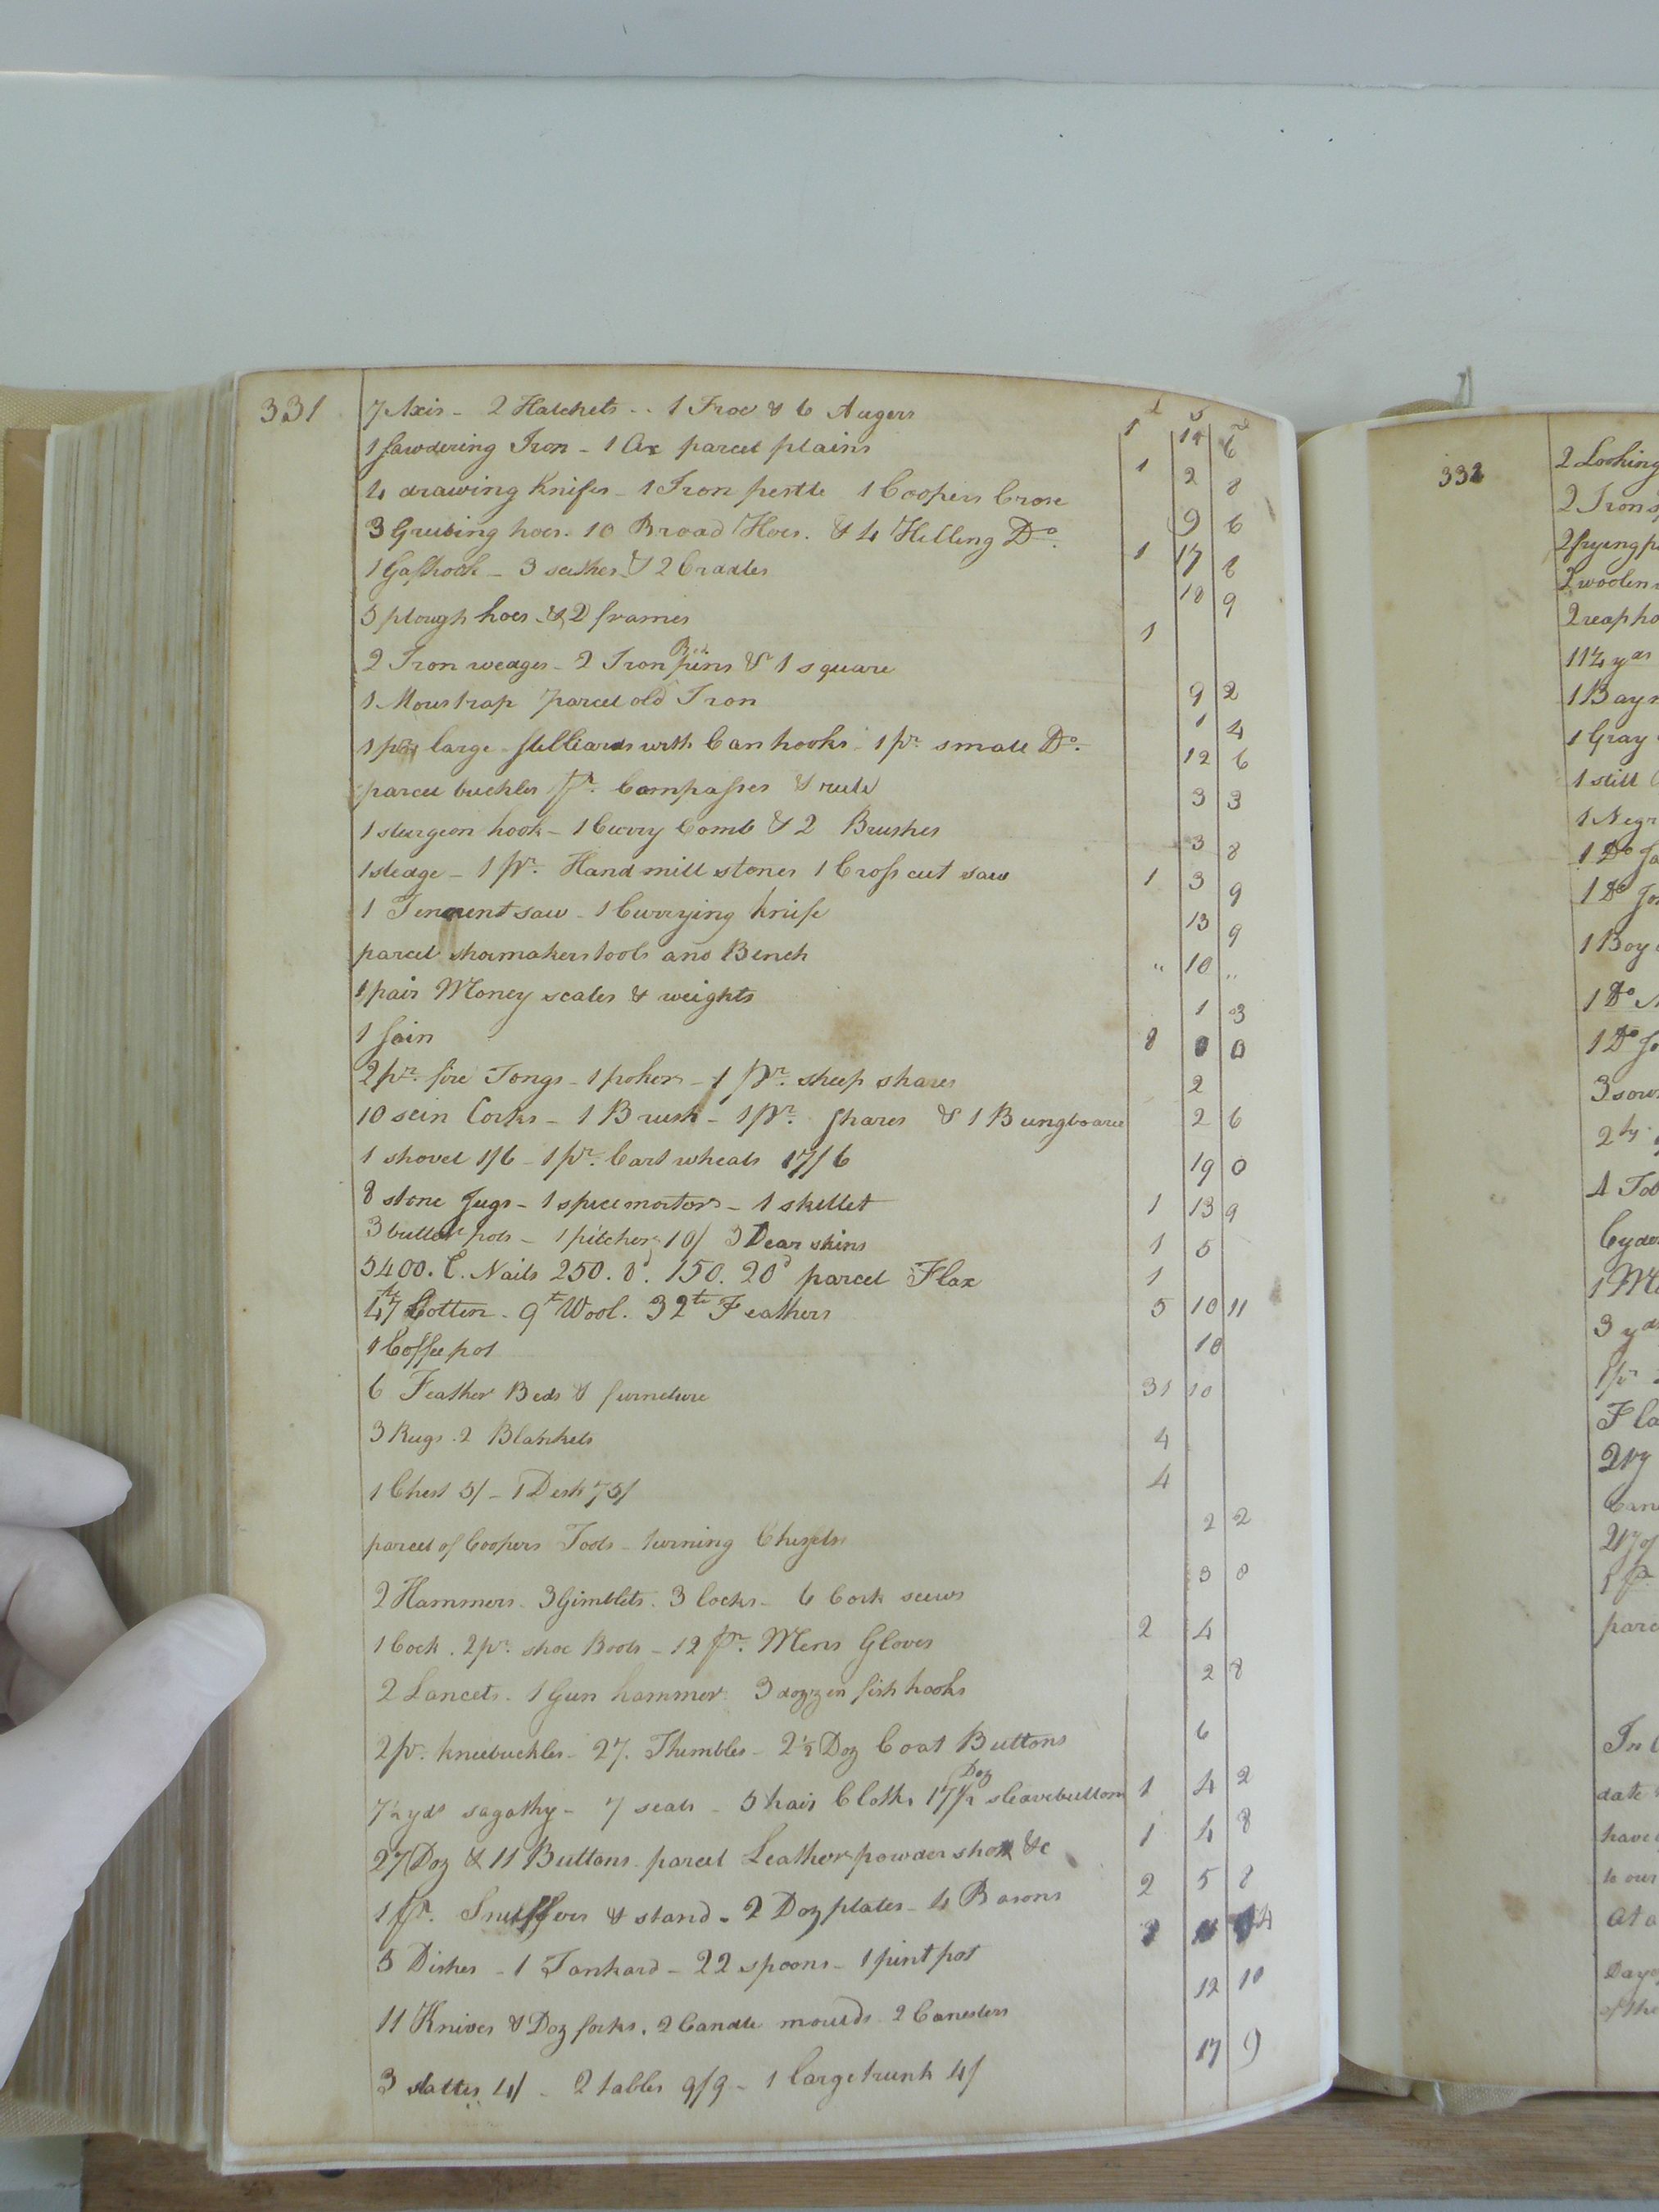 331
£ s d
7 Axis - 2 Hatchets - - 1 Froe & 6 Augers 1 14 6
1 sawdering Iron - 1 Ax parcel plains 1 2 8
4 drawing Knifes - 1 Iron pestle 1 Coopers Crose 9 6
3 Grubing hoes. 10 Broad Hoes. & 4 Helling Do. 1 17 8
1 Gafhook - 3 sithes & 2 Cradles 18 9
5 plough hoes & 2 frames 1
2 Iron wedges - 2 Iron Box pins & 1 square 9 2
1 Mowstrap parcel old Iron 1 4
1 pair large stilliards with Can hooks 1 pr. small Do. 12 6
parcel buckles pr. Compasses & rule 3 3
1 sturgeon hook - 1 Curry Comb & 2 Brushes 3 8
1 sledge - 1 pr. Hand mill stones 1 Cross cut saw 1 3 9
1 Tennent saw - 1 Currying knife 13 9
parcel shoemakers tools and Bench " 10 "
1 pair Money scales & weights 1 3
1 sain 8 0 0
2 pr. fire Tongs - 1 poker - 1 pr. sheep shares 2
10 sein Corks - 1 Brush - 1 pr. shares & 1 Bungboarer 2 6
1 shovel 1/6 - 1 pr. Cart wheals 17/6 19 0
8 stone Jugs - 1 spice mortor - 1 skillet 1 13 9
3 butter pots - 1 pitcher 10/ 3 Dear skins 1 5
5400. C. Nails 250. 8d. 150. 20d parcel Flax 1
47 lb Cotten - 9 lb Wool. 32 lb Feathers 5 10 11
1 Coffee pot 10
6 Feather Beds & furneture 31 10
3 Rugs. 2 Blankets 4
1 Chest 5/ - 1 Desk 75/ 4
parcel of Coopers Tools - turning Chizels 2 2
2 Hammers. 3 Gimblets. 3 locks - 6 Cork scews 3 8
1 Cock. 2 pr. shoe Boots - 12 pr. Mens Gloves 2 4
2 Lancets. 1 Gun hammer 3 dozzen fish hooks 2 8
2 pr. kneebuckles - 27. Thimbles - 2½ Doz Coat Buttons 6
7½ yds sagathy - 7 seats - 5 hair Cloths 17½ Doz sleavebuttons 1 4 2
27 Doz & 11 Buttons. parcel Leather powder shot &c 1 4 8
1 pr. Snuffers & stand - 2 Doz plates - 4 Basons 2 5 8
5 Dishes - 1 Tankard - 22 spoons - 1 pint pot 4
11 Knives & Doz forks. 2 Candle moulds 2 Canesters 12 10
3 slattes 4/ - 2 tables 9/9 - 1 large trunk 4/ 17 9
332
2 Looking
2 Iron
2 frying
2 woolen
2 reap
11½ yds
1 Bay
1 Gray
1 still
1 Negr
1 Do
1 Do
1 Boy
1 Do
1 Do
3 sow
4
Cyder
3 yds
1 pr
parc
In
date
have
to our
At a
Day
of the